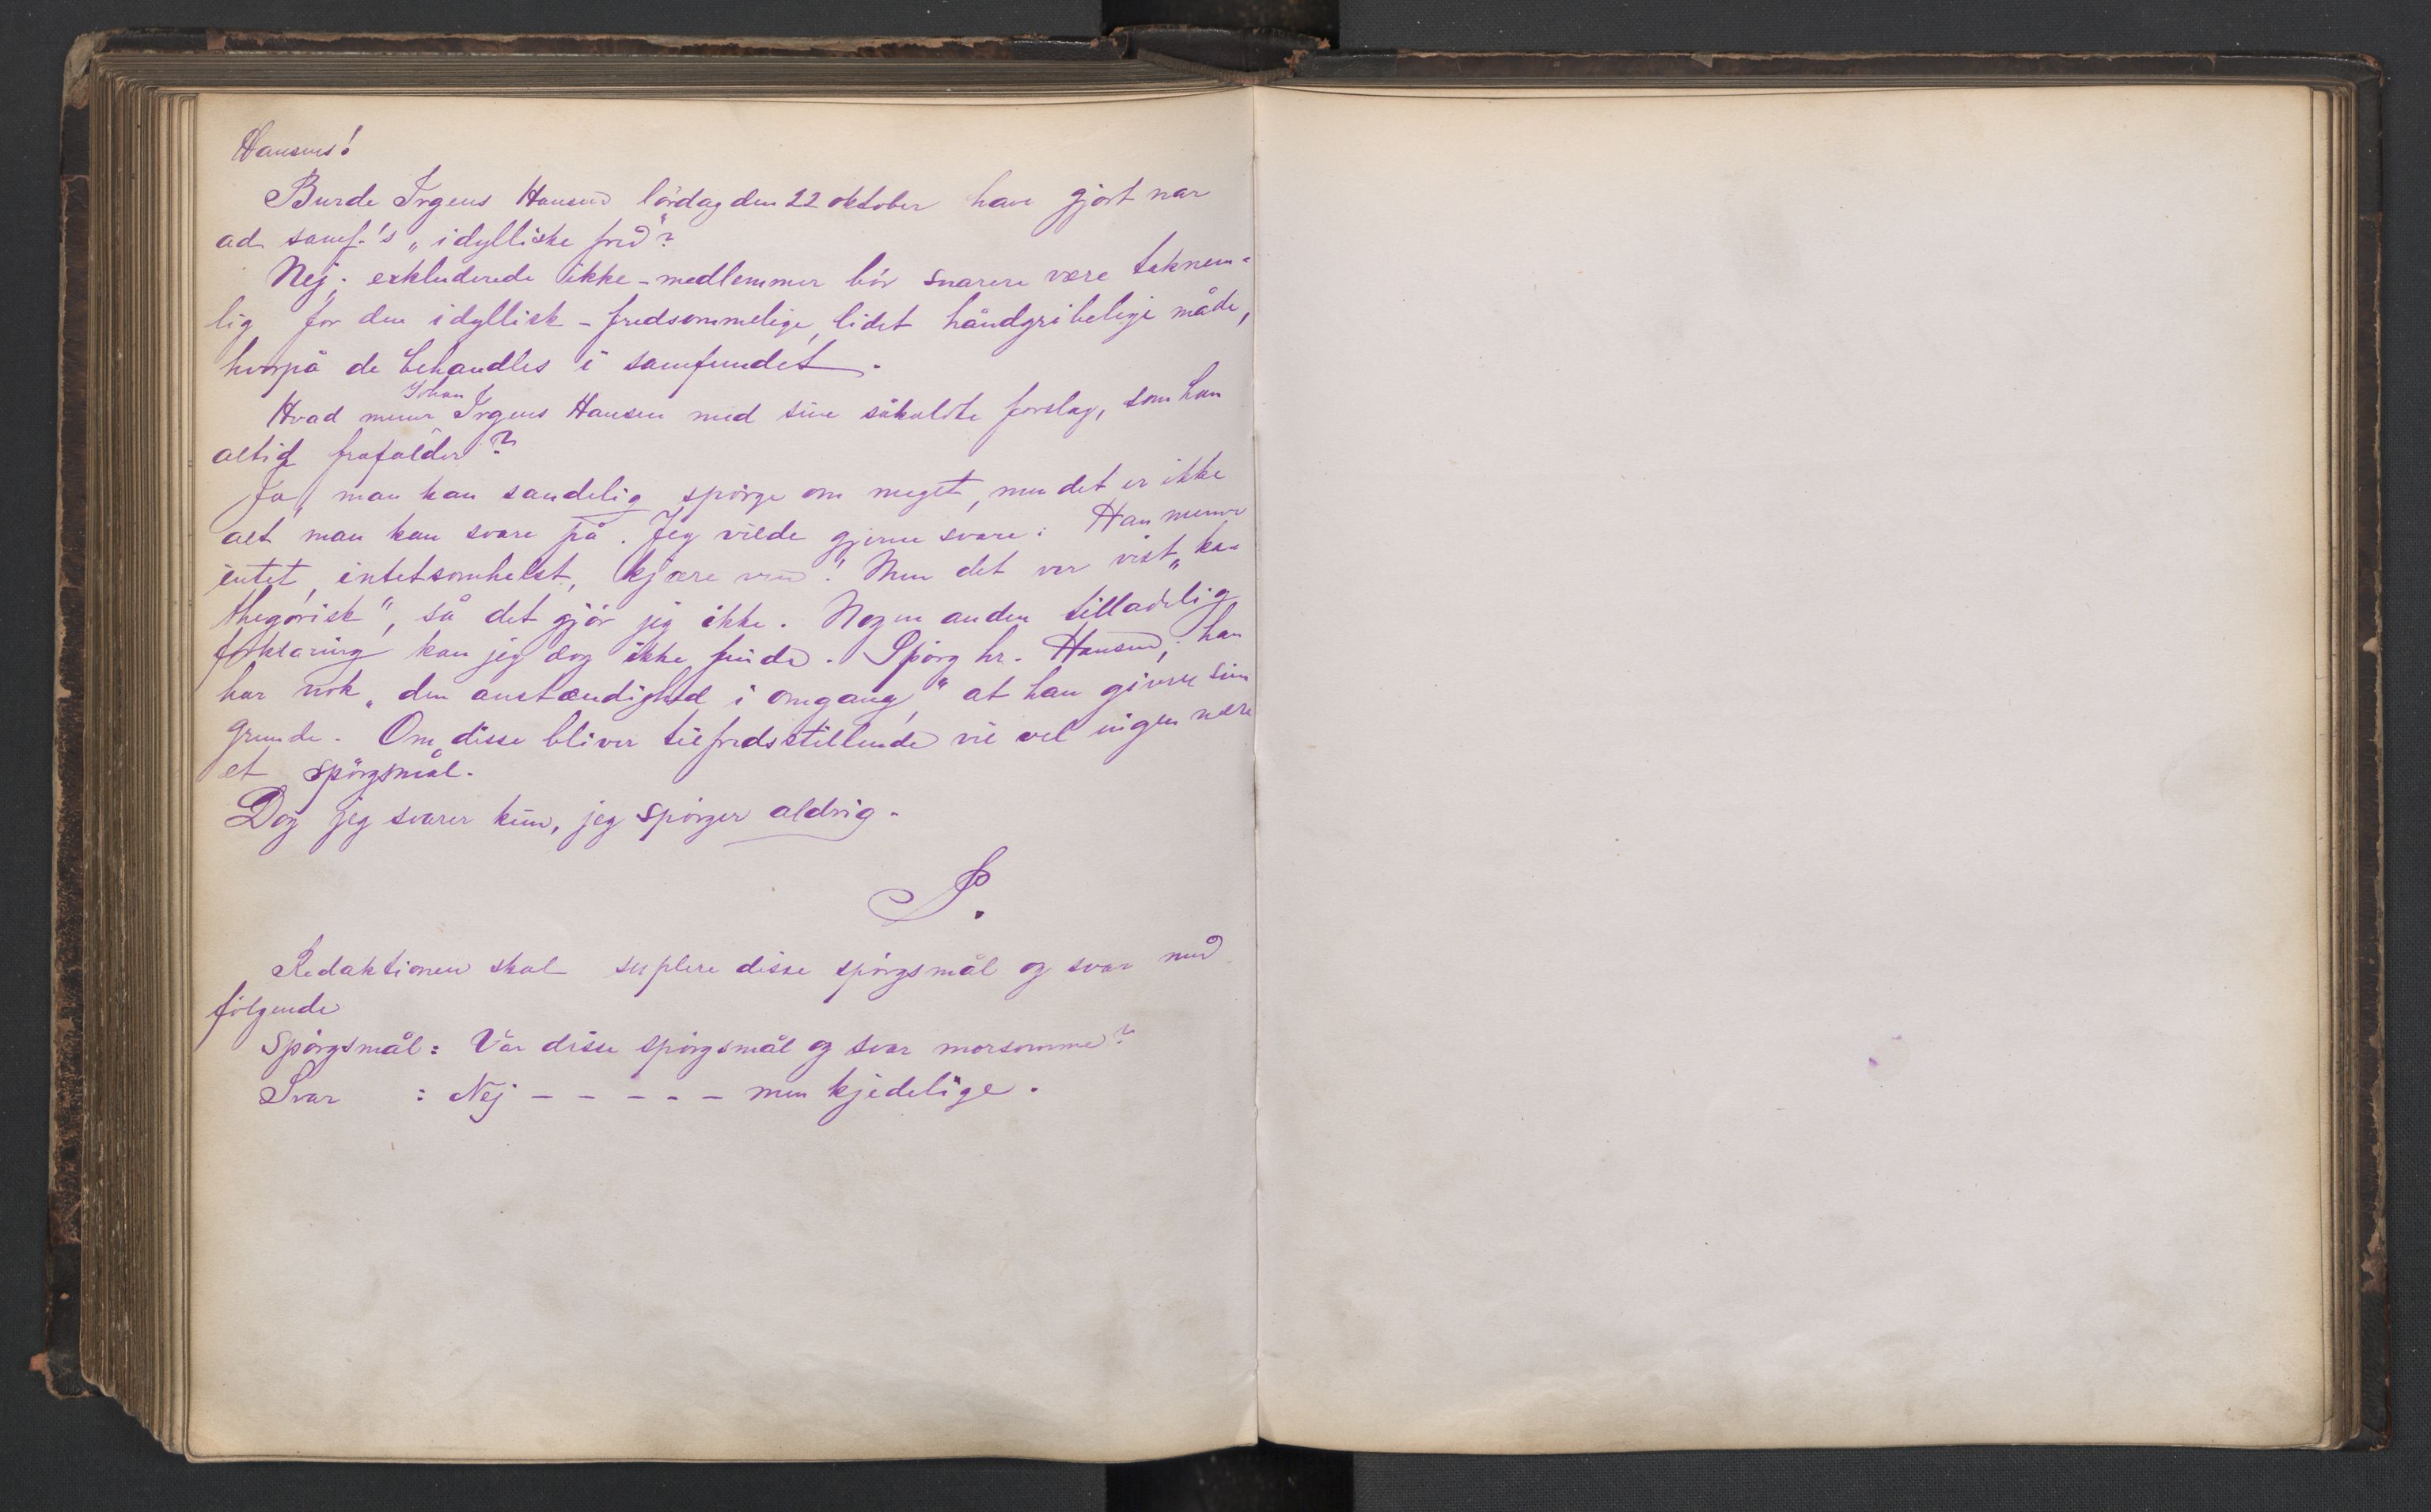 Hansens!
Burde Irgens Hansen lørdag den 22 oktober have gjort nar
ad samf.'s „idylliske fred"?
Nej; exkluderede ikke-medlemmer bör snarere være taknem-
lig for den idyllisk-fredsommelige, lidet håndgribelige måde,
hvorpå de behandles i samfundet.
Hvad mener Johan Irgens Hansen med sine såkaldte forslag, som han
altid frafalder?
Ja, man kan sandelig spörge om meget, men det er ikke
alt man kan svare på. Jeg vilde gjerne svare: Han mener
intet, intetsomhelst, kjære ven! Men det var vist „ka-
thegorisk", så det gjör jeg ikke. Nogen anden tilladelig
forklaring kan jeg dog ikke finde. Spörg hr. Hansen; han
har nok „den anstændighed i omgang," at han giver sine
grunde. Om disse bliver tilfredsstillende vil vel ingen være
et spörgsmål.
Dog jeg svarer kun, jeg spörger aldrig.
S.
Redaktionen skal suplere disse spörgsmål og svar med
fölgende
Spörgsmål: Var disse spörgsmål og svar morsomme?
Svar : Nej – – – – – men kjedelige.